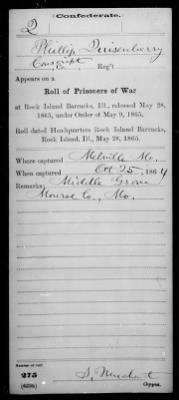 Confederate.
Q
Phillip Quisenberry
Conscript
Co. , Reg't
Appears on a
Roll of Prisoners of War
at Rock Island Barracks, Ill., released May 28,
1865, under Order of May 9, 1865.
Roll dated Headquarters Rock Island Barracks,
Rock Island, Ill., May 28, 1865.
Where captured Melville Mo.
When captured Oct 25, 1864
Remarks: Middle Grove
Monroe Co., Mo.
Number of roll:
275
(639b)
Copyist.